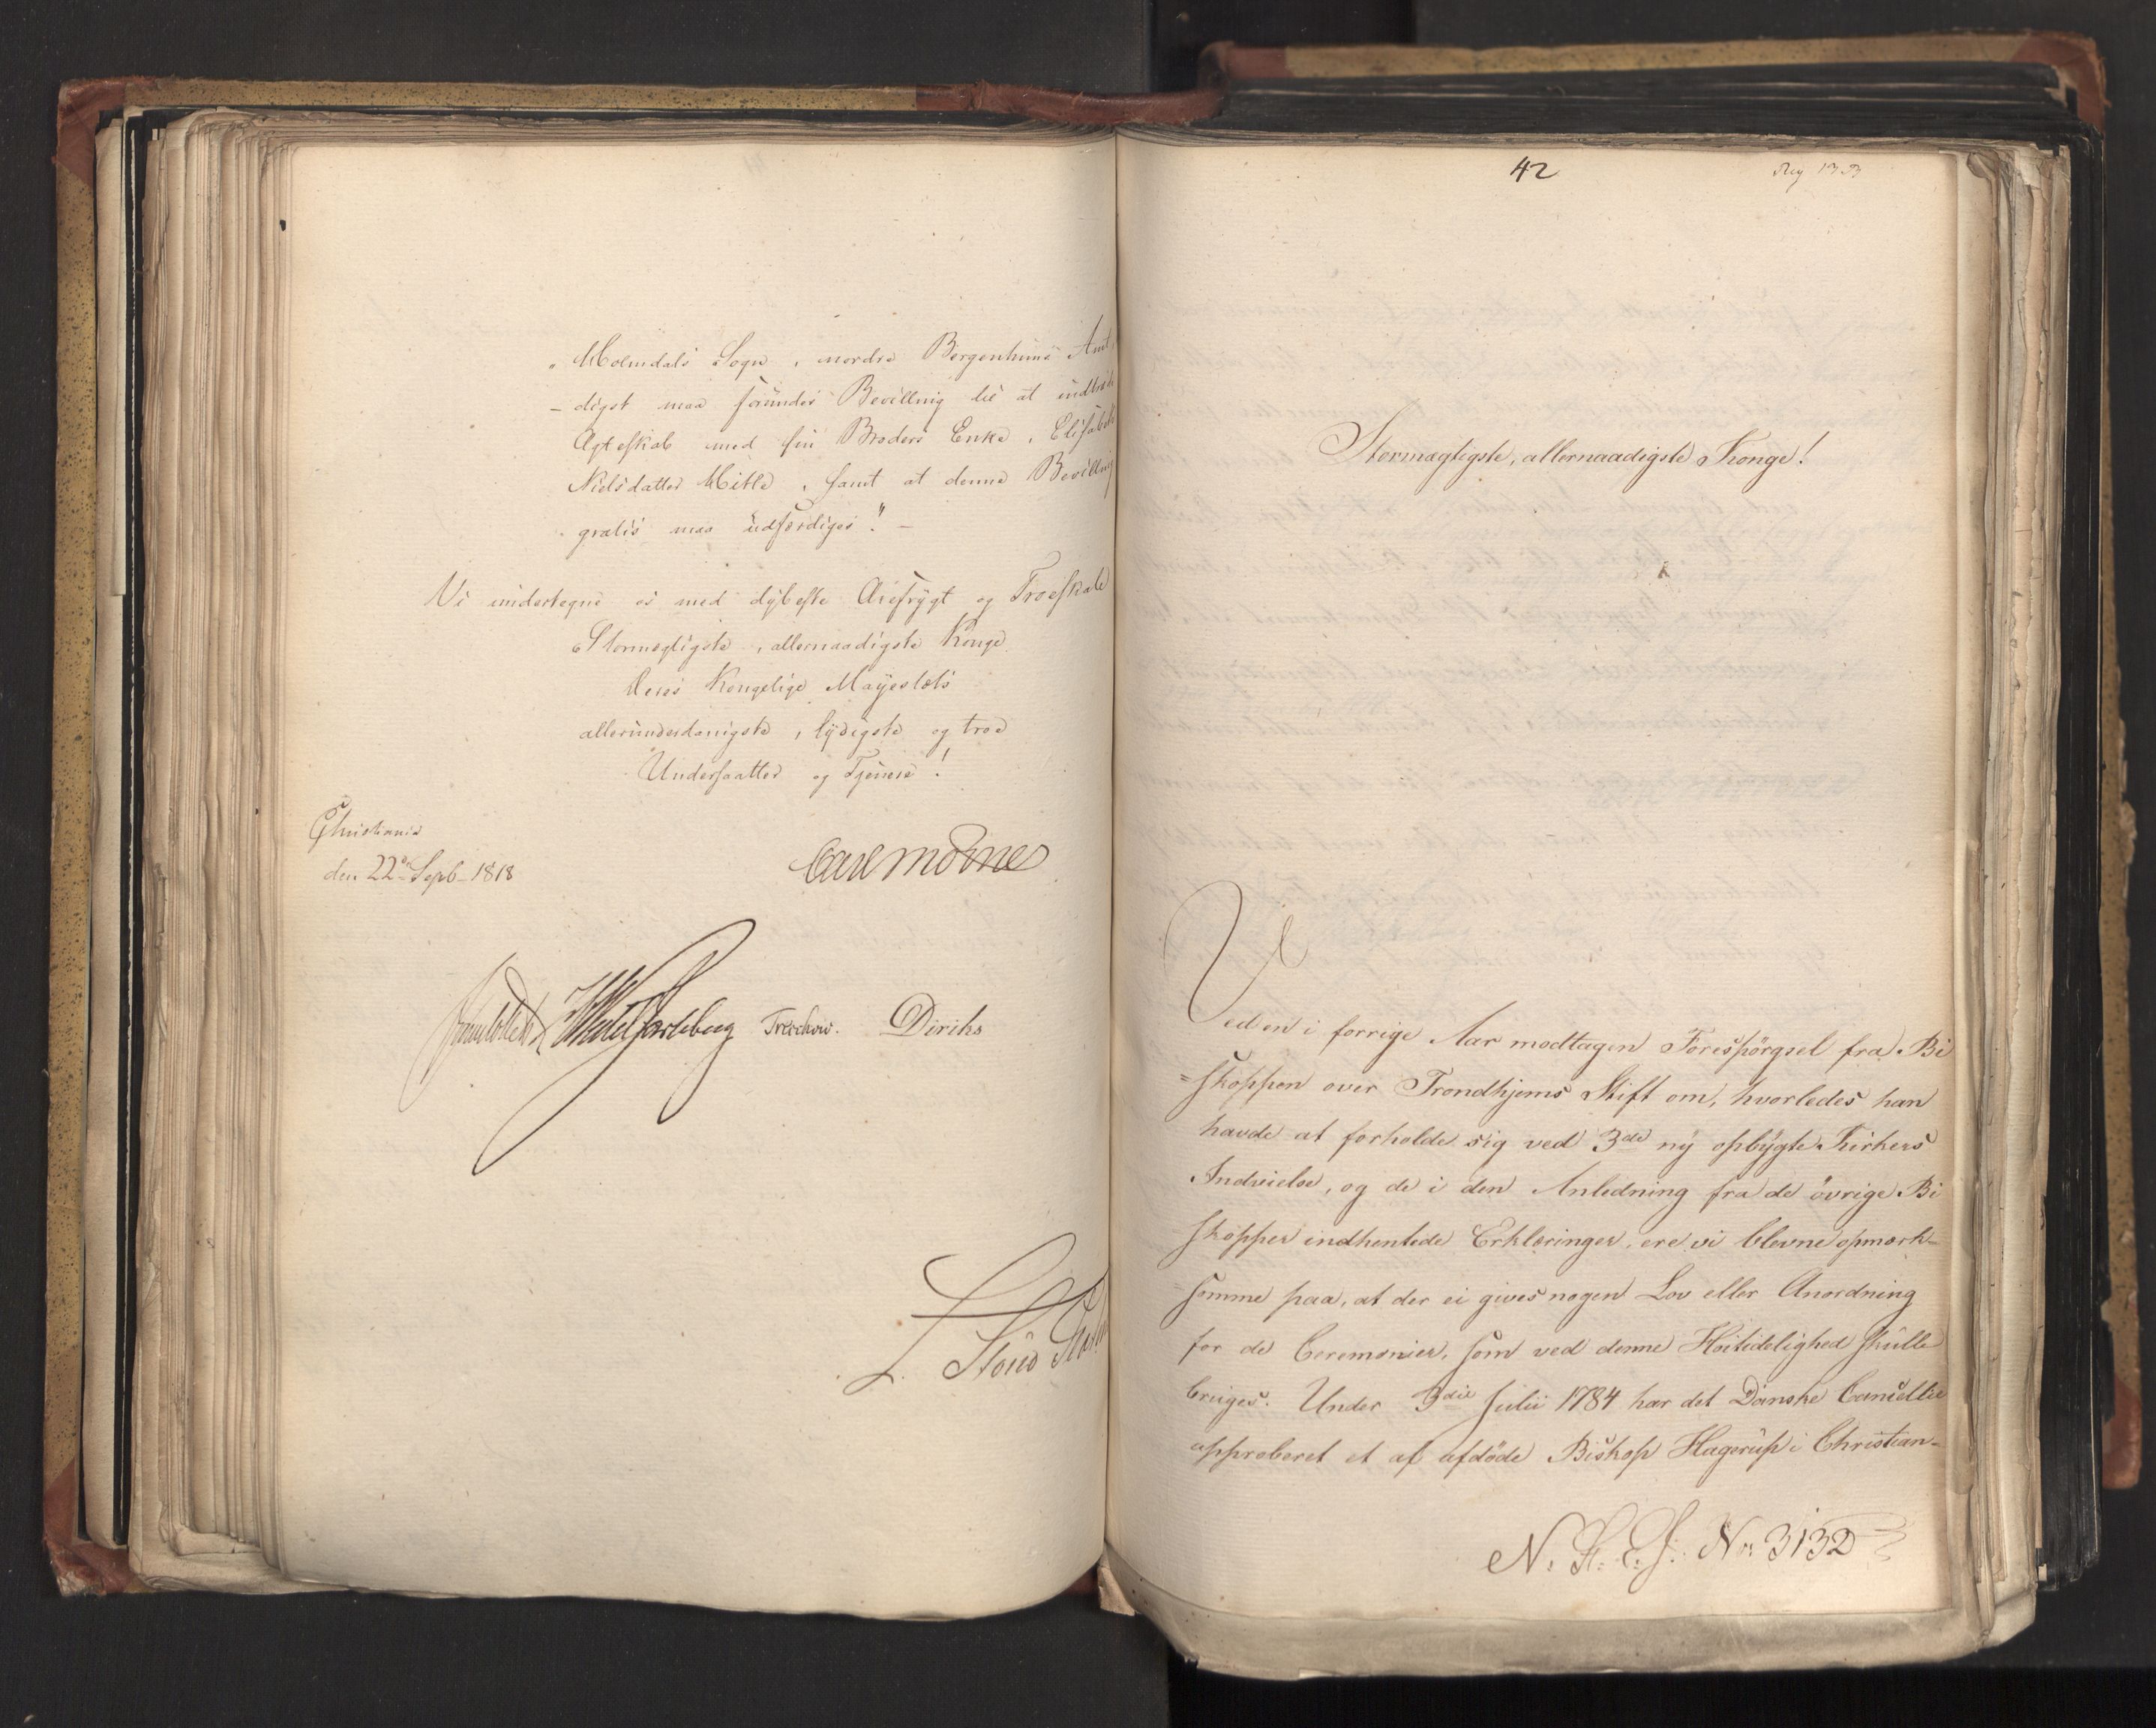 „Holmdals Sogn, nordre Bergenhuus Amt,
- digst maa forundes Bevilling til at indtræde
Ægteskab med sin Broders Enke, Elisabeth
Nielsdatter, samt at denne Bevilling
gratis maa udfærdiges". -
Vi undertegne os med dybeste Ærefrygt og Troeskab
Stormægtigste, allernaadigste Konge
Deres Kongelige Mayestæts
allerunderdanigste, lydigste og troe
Undersaatter og Tjenere!
Christiania
den 22de Septb 1818
Carl Mörner
Sommerhielm HWedel Jarlsberg Treschow. Diriks
L. Stoud
42
Reg
Stormægtigste, allernaadigste Konge!
Ved en i forrige Aar modtagen Forespörgsel fra Bi
=skoppen over Trondhjems Stift om, hvorledes han
havde at forholde sig ved 3de ny opbygte Kirkers
Indvielse, og de i den Anledning fra de övrige Bi
skopper indhentede Erklæringer, ere vi blevne opmærk-
=somme paa, at der ei gives nogen Lov eller Anordning
for de Ceremonier, som ved denne Höitidelighed skulle
bruges. Under 3die Julii 1784 har det Danske Cancellie
approberet et af afdöde Biskop Hagerup i Christian-
No: 3132